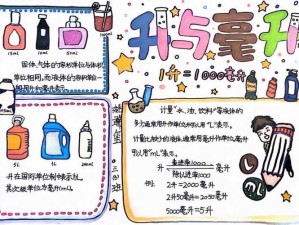 升与毫升
1升=1000毫升
15ml
10ml
250ml
固体、气体的容积单位与体
积单位相同,而液体的容积单
位
1L
2L
5L
200ml
升在国际单位制中表示为L,
其次级单位为毫升(mL)。
三(5)班
计量“水、油、饮料”等液体的
多少通常用升作单位,可以用“L”表示。
计量比较少的液体,通常用毫升作单位,可
以用“mL”表示。
L
mL
乘进率1000
升
毫升
除以进率1000
例:
2升=2000毫升
2升50毫升=2050毫升
5000毫升=5升